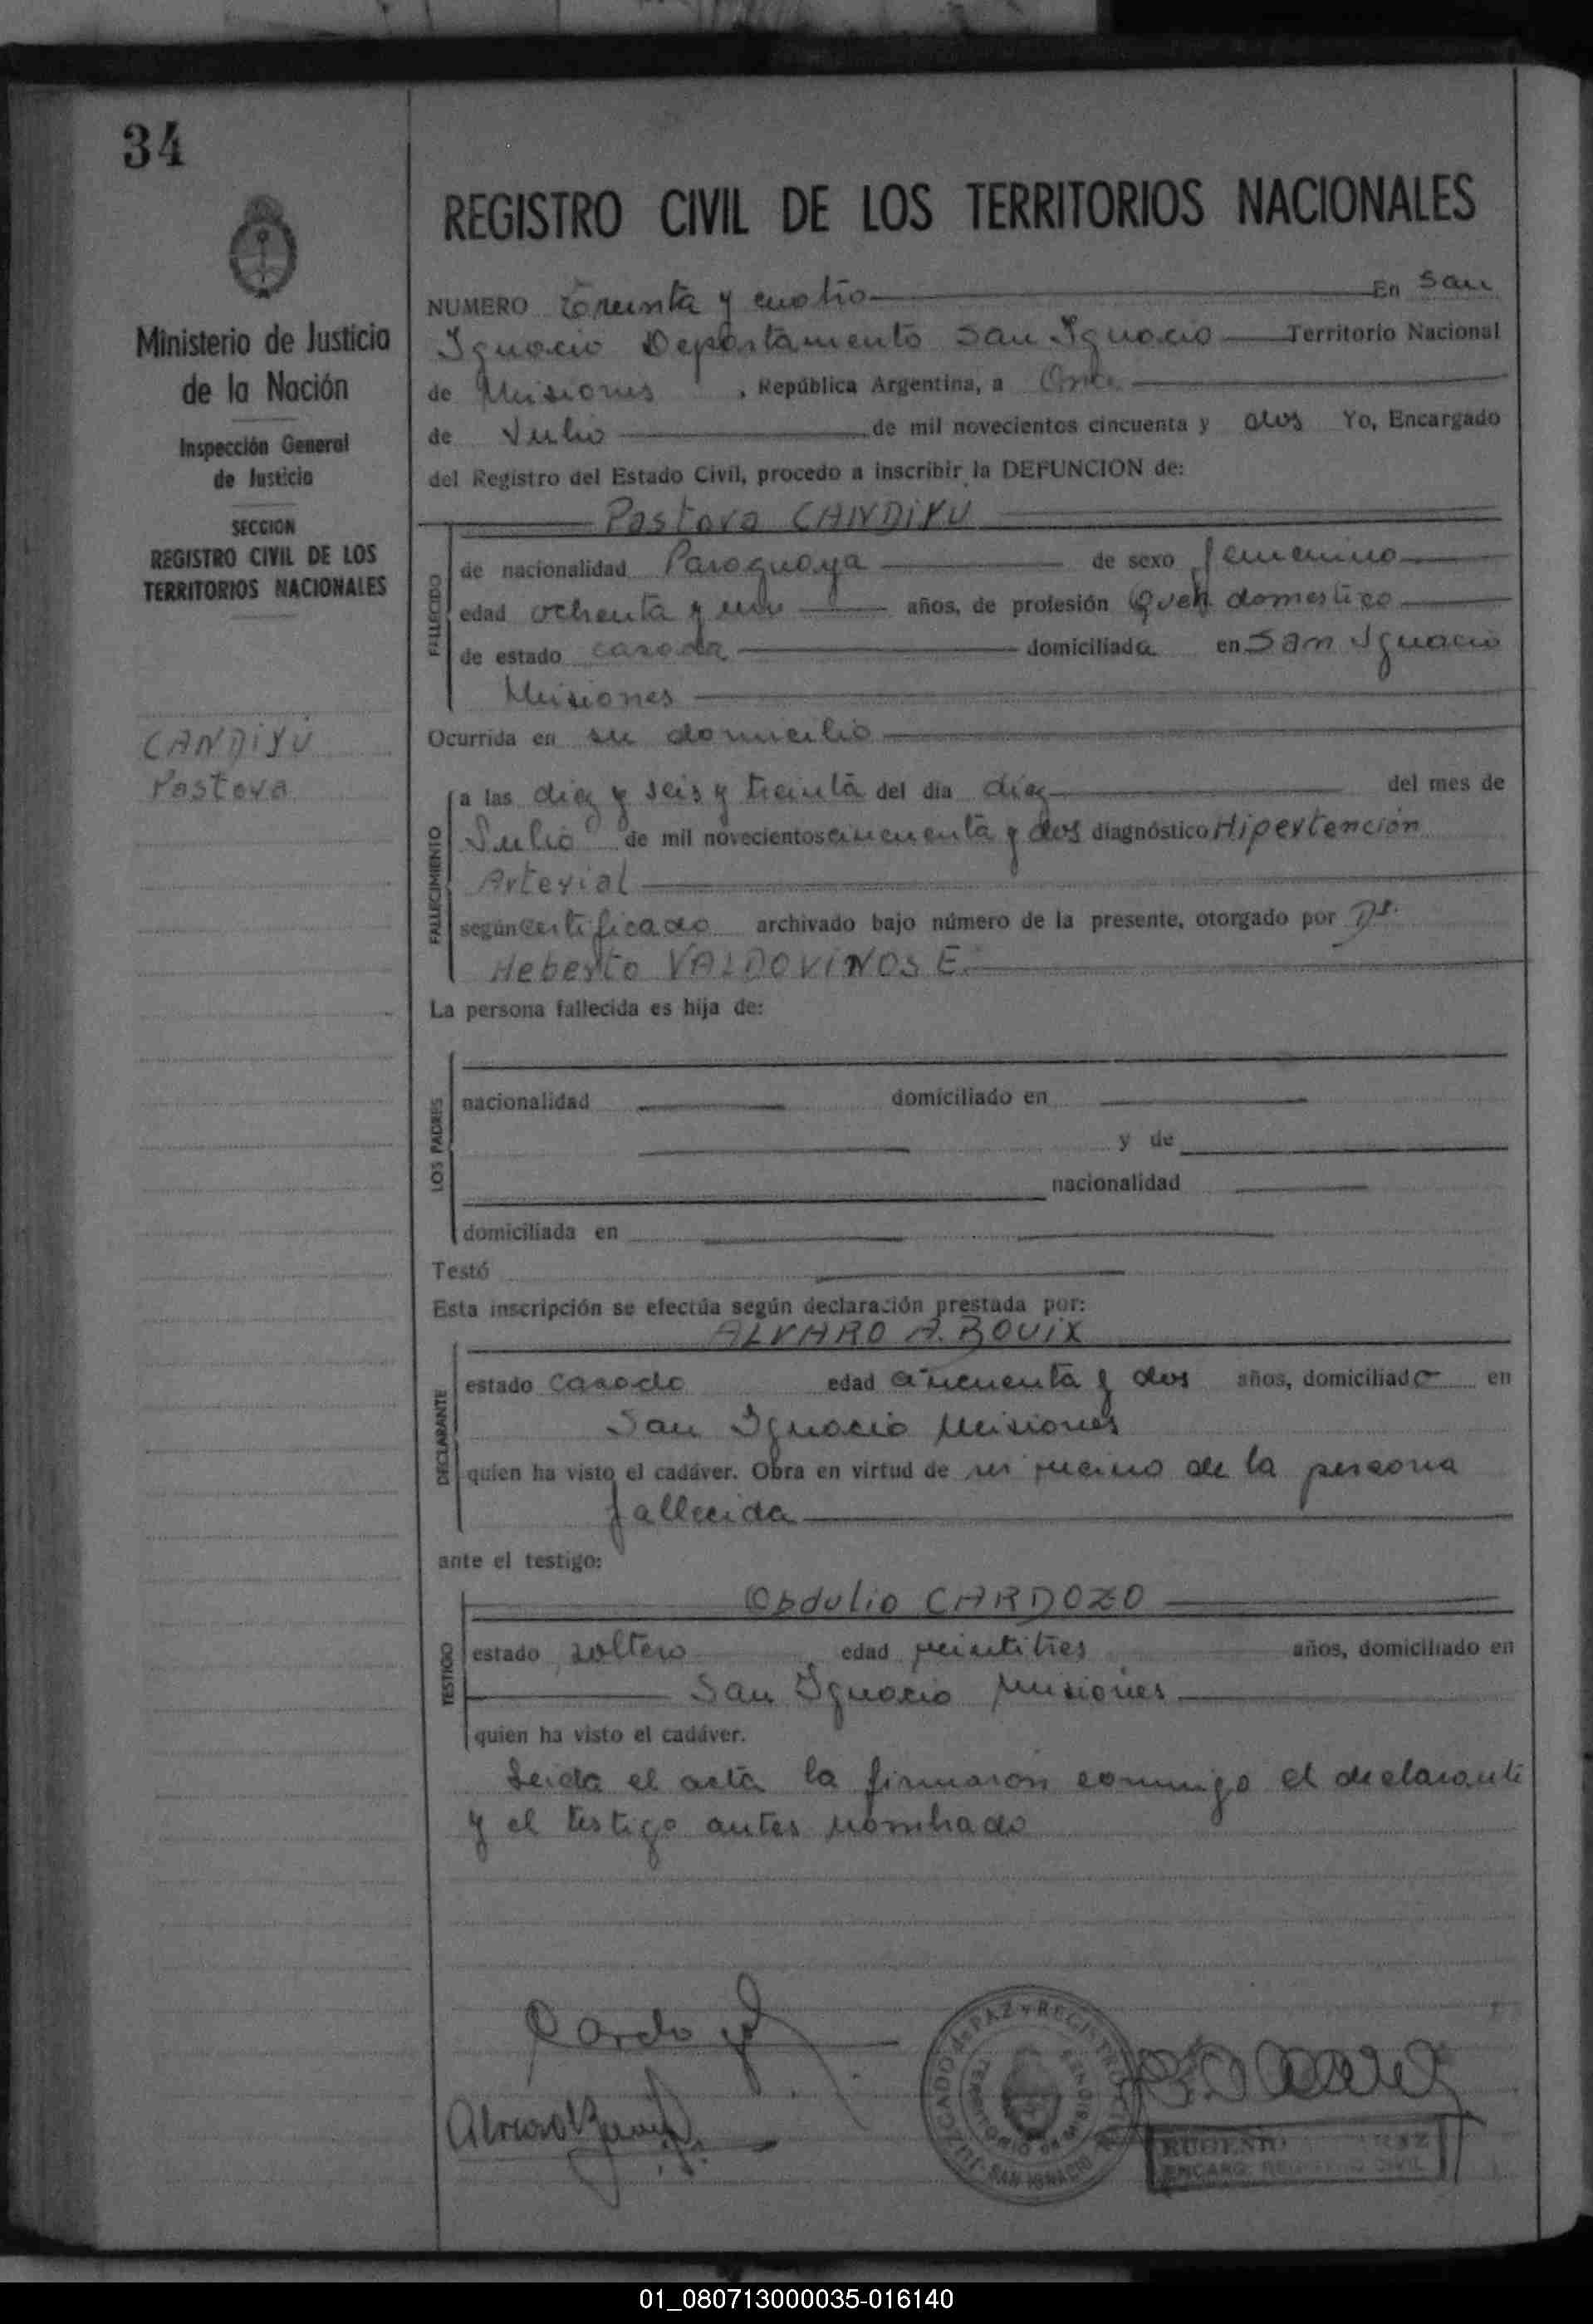 34
REGISTRO CIVIL DE LOS TERRITORIOS NACIONALES
Ministerio de Justicia
de la Nación
Inspección General
de Justicia
SECCION
REGISTRO CIVIL DE LOS
TERRITORIOS NACIONALES
CANDIYÚ
Pastora
NUMERO Treinta y cuatro En San
Ignacio Departamento San Ignacio Territorio Nacional
de Misiones, República Argentina, a Once
de Julio de mil novecientos cincuenta y dos Yo, Encargado
del Registro del Estado Civil, procedo a inscribir la DEFUNCION de:
Pastora CANDIYU
FALLECIDO
de nacionalidad Paraguaya de sexo femenino
edad ochenta y uno años, de profesión Queh. domestico
de estado casada domiciliada en San Ignacio
Misiones
Ocurrida en su domicilio
FALLECIMIENTO
a las diez y seis y treinta del día diez del mes de
Julio de mil novecientos cincuenta y dos diagnóstico Hipertención
Arterial
según certificado archivado bajo número de la presente, otorgado por Dr.
Heberto VALDOVINOS E.
La persona fallecida es hija de:
LOS PADRES
nacionalidad domiciliado en
y de
nacionalidad
domiciliada en
Testó
Esta inscripción se efectúa según declaración prestada por:
ALVARO A. BOUIX
DECLARANTE
estado casado edad cincuenta y dos años, domiciliado en
San Ignacio Misiones
quien ha visto el cadáver. Obra en virtud de ser vecino de la persona
fallecida
ante el testigo:
Obdulio CARDOZO
TESTIGO
estado soltero edad veintitres años, domiciliado en
San Ignacio Misiones
quien ha visto el cadáver.
Leida el acta la firmaron conmigo el declarante
y el testigo antes nombrado
JUZGADO de PAZ y REGISTRO
TERRITORIO DE MISIONES
SAN IGNACIO
ENCARG. REGISTRO CIVIL
01_080713000035-016140